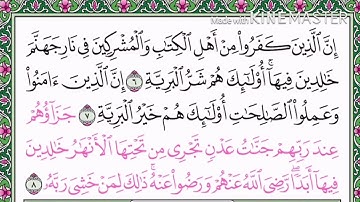 Made with KINEMASTER
إِنَّ ٱلَّذِينَ كَفَرُواْ مِنۡ أَهۡلِ ٱلۡكِتَٰبِ وَٱلۡمُشۡرِكِينَ فِي نَارِ جَهَنَّمَ
خَٰلِدِينَ فِيهَآۚ أُوْلَٰٓئِكَ هُمۡ شَرُّ ٱلۡبَرِيَّةِ ٦ إِنَّ ٱلَّذِينَ ءَامَنُواْ
وَعَمِلُواْ ٱلصَّٰلِحَٰتِ أُوْلَٰٓئِكَ هُمۡ خَيۡرُ ٱلۡبَرِيَّةِ ٧ جَزَآؤُهُمۡ
عِندَ رَبِّهِمۡ جَنَّٰتُ عَدۡنٖ تَجۡرِي مِن تَحۡتِهَا ٱلۡأَنۡهَٰرُ خَٰلِدِينَ
فِيهَآ أَبَدٗاۖ رَّضِيَ ٱللَّهُ عَنۡهُمۡ وَرَضُواْ عَنۡهُۚ ذَٰلِكَ لِمَنۡ خَشِيَ رَبَّهُۥ ٨